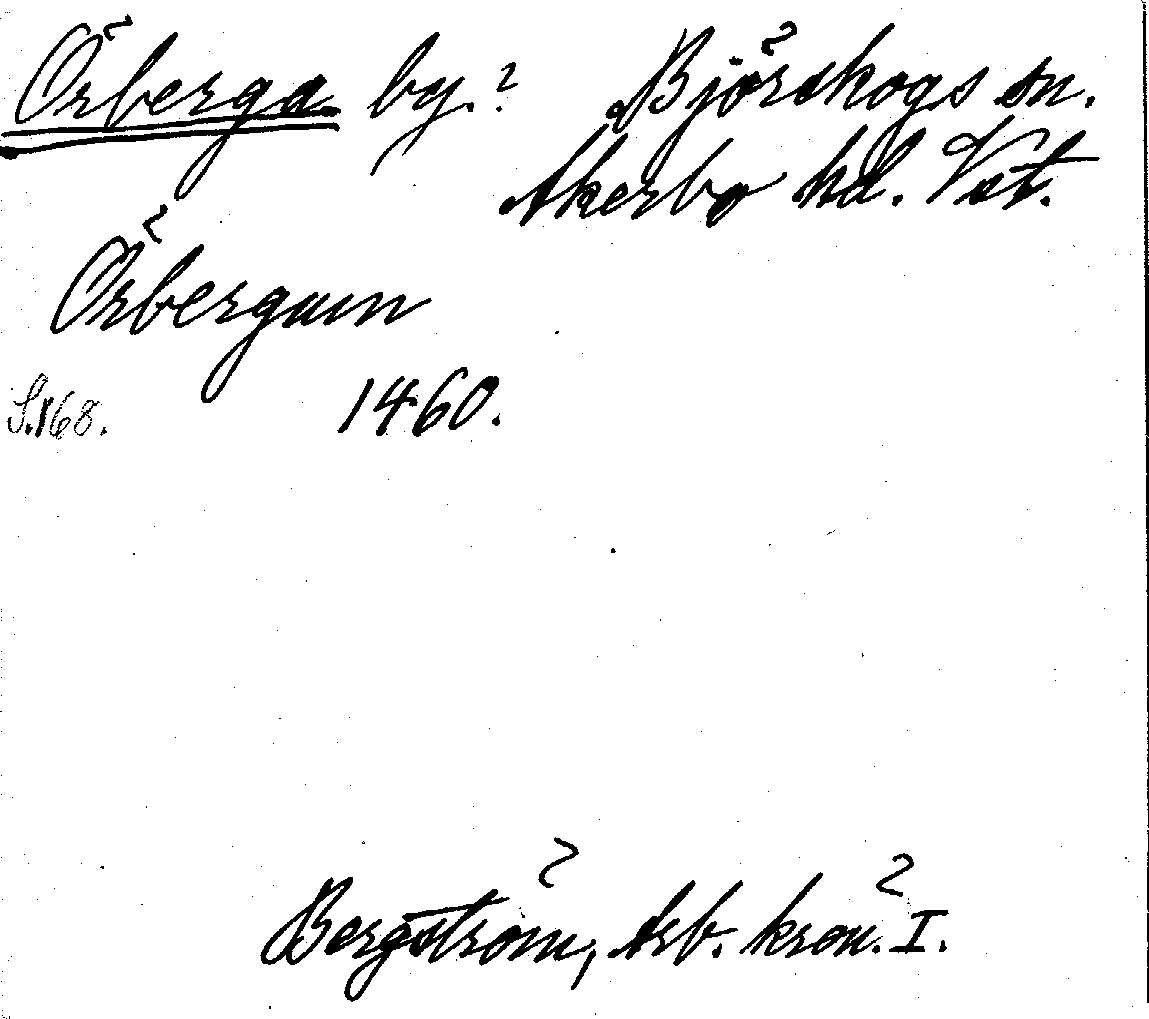 Örberga by.? Björskogs sn.
Åkerbo hd. Vst.
Örbergum
S.168. 1460.
Bergström, Arb. krön. I.